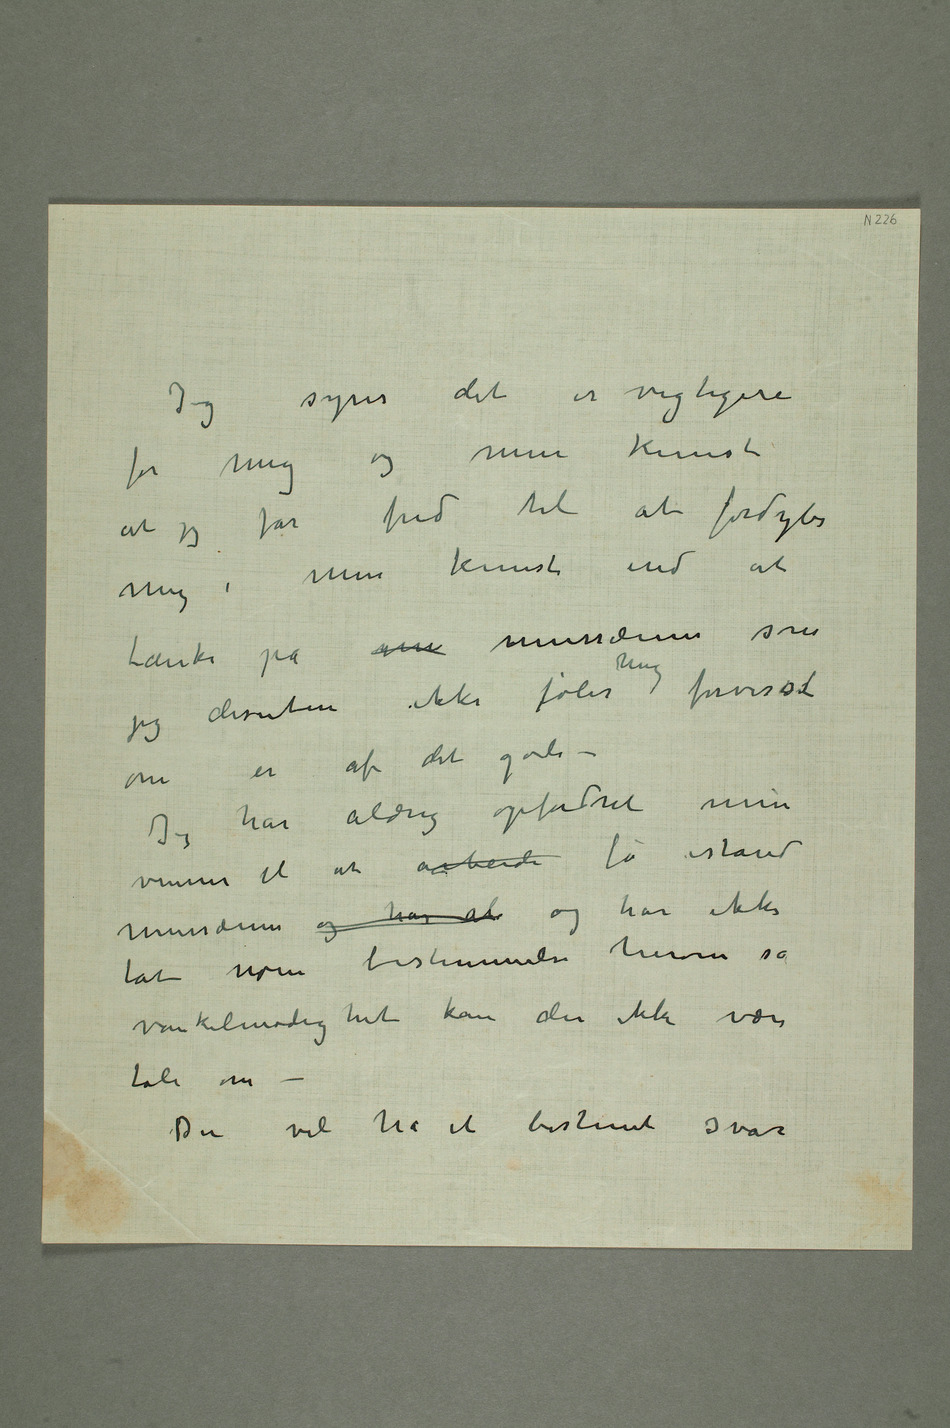 N 226
Jeg synes det er vigtigere
for mig og min kunst
at jeg får fred til at fordybe
mig i min kunst end at
tænke på museerne som
jeg desuten ikke føler mig forvisset
om er af det gode –
Jeg har aldrig opfordret mine
venner til at arbeide få istand
museerne og har at og har ikke
tat noen bestemmelse herom så
vankelmodighet kan der ikke være
tale om –
Du vil ha et bestemt svar